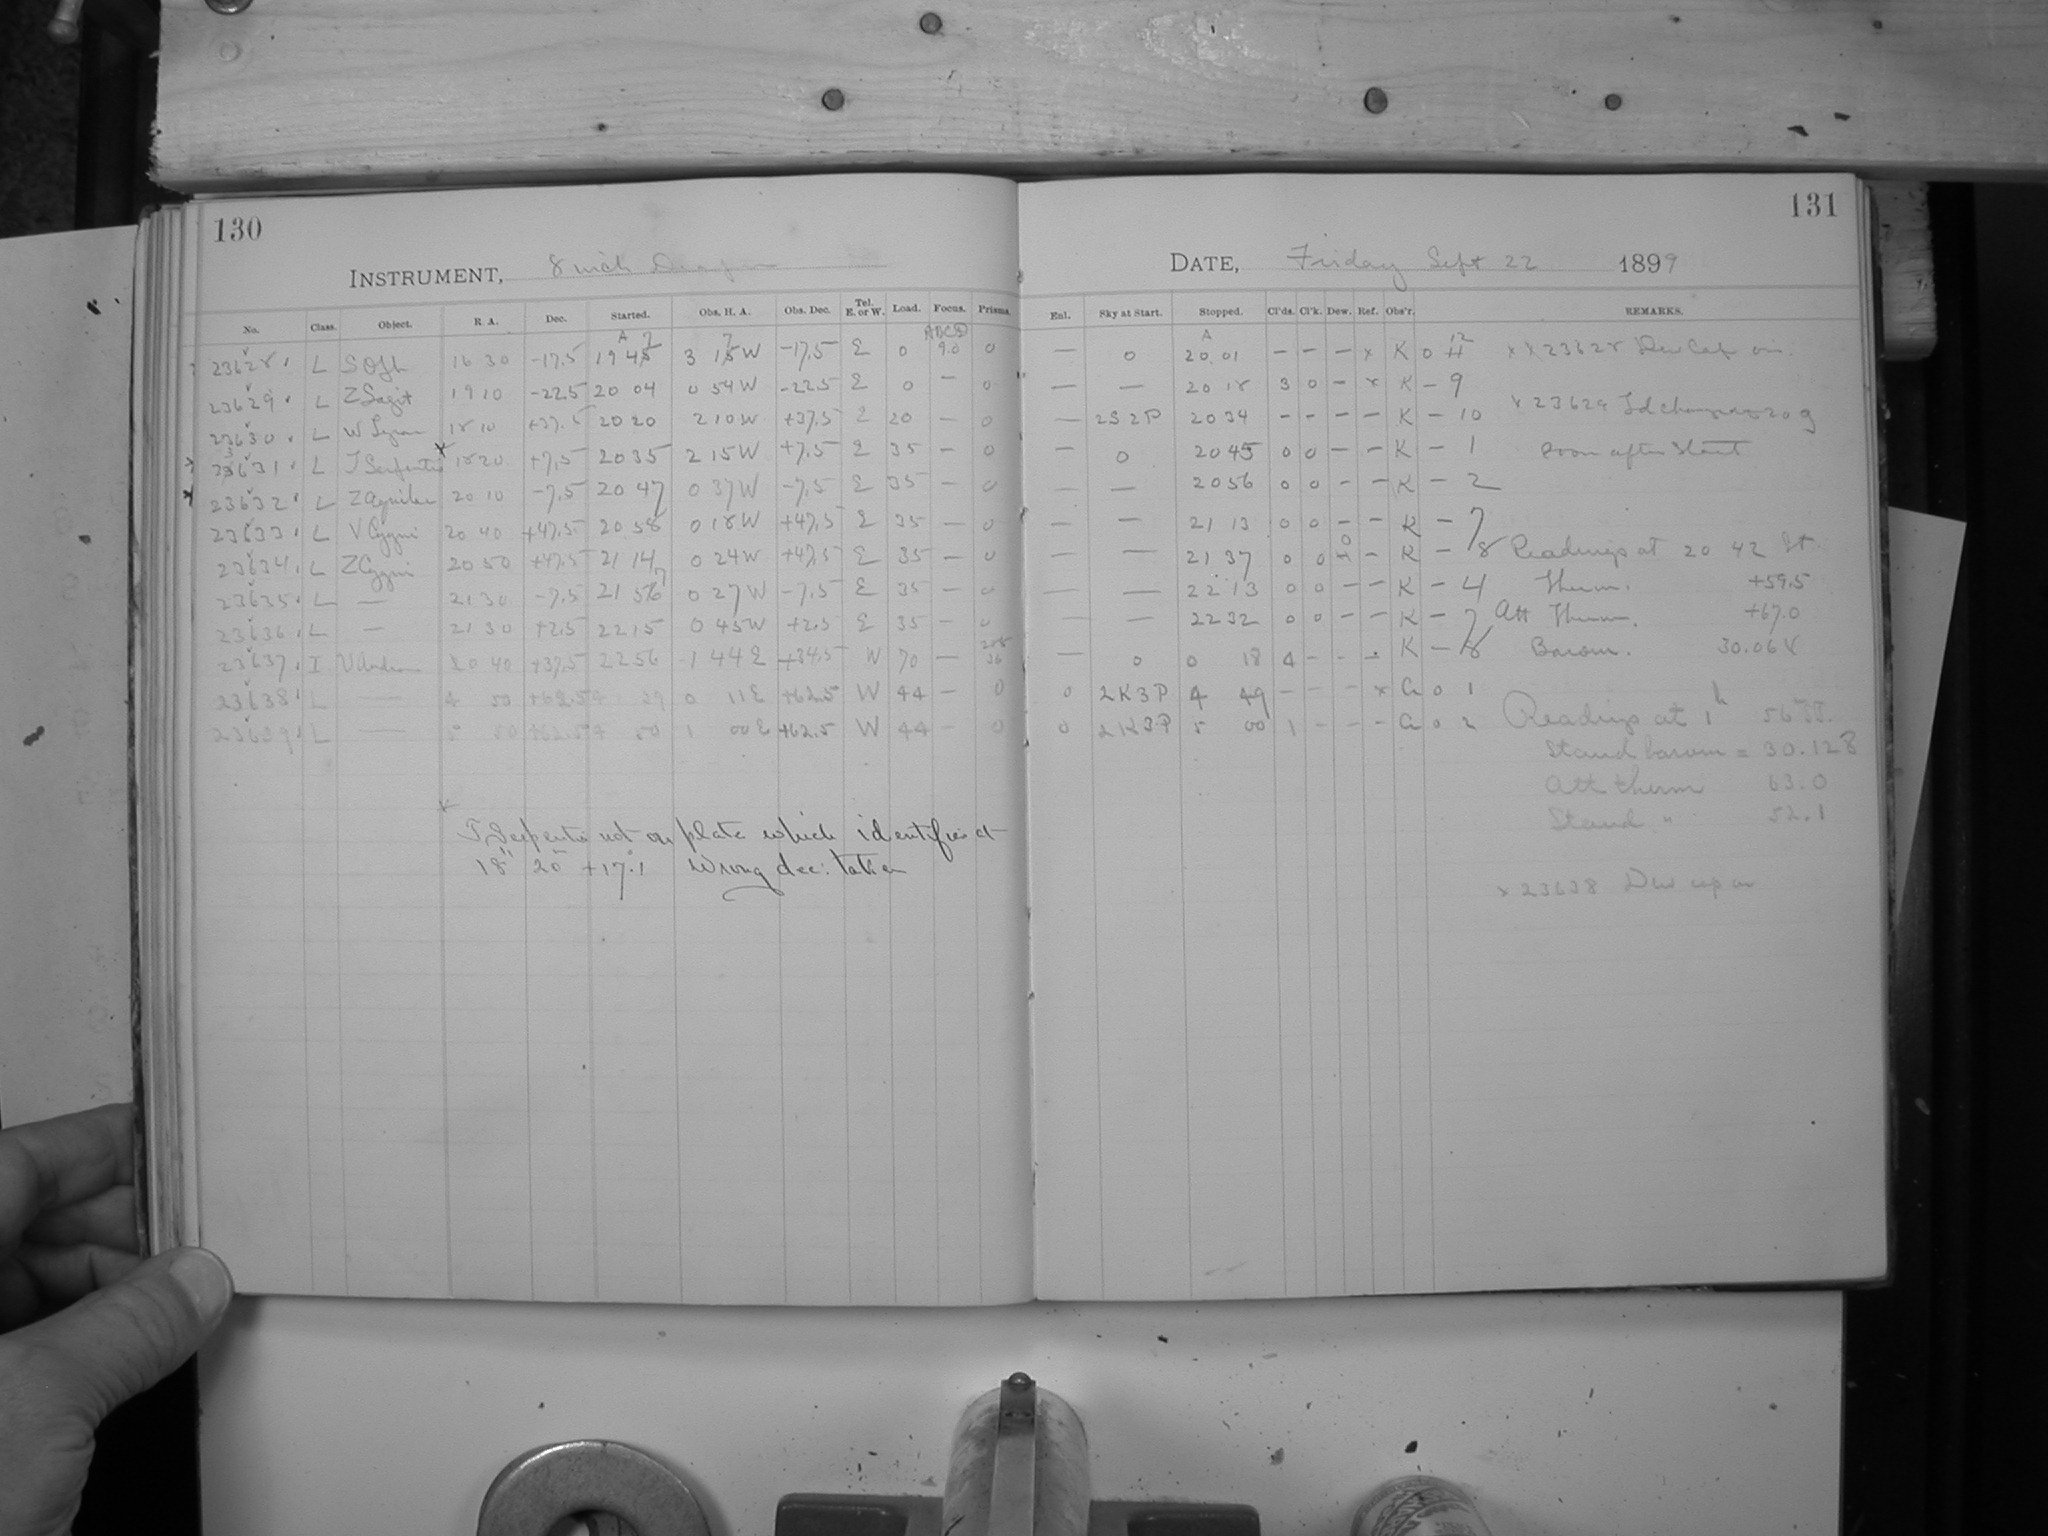 130
131
INSTRUMENT, 8 inch Draper
DATE, Friday Sept 22 1899
No. Class. Object. R. A. Dec. Started. Obs. H. A. Obs. Dec. Tel. E. or W. Load. Focus. Prisms.
Enl. Sky at Start. Stopped. Cl'ds. Cl'k. Dew. Ref. Obs'r. REMARKS.
A
ABCD
A
23628 L S Oph 16 30 -17.5 19 45 3 15 W -17.5 E 0 9.0 0 — 0 20.01 - - - x K 0 12 x x 23628 Dew Cap on
23629 L Z Sagit 19 10 -22.5 20 04 0 54 W -22.5 E 0 — 0 — — 20 18 3 0 - x K - 9
23630 L W Lyrae 18 10 +37.5 20 20 2 10 W +37.5 E 20 - 0 — 2S 2P 20 34 - - - - K - 10 x 23629 Ld changed to 20 g
x 23631 L T Serpentis x 18 20 +7.5 20 35 2 15 W +7.5 E 35 - 0 — 0 20 45 0 0 - - K - 1 soon after start
x 23632 L Z Aquilae 20 10 -7.5 20 47 0 37 W -7.5 E 35 - 0 — — 20 56 0 0 - - K - 2
23633 L V Cygni 20 40 +47.5 20 58 0 18 W +47.5 E 35 - 0 — — 21 13 0 0 - - K - 7
23634 L Z Cygni 20 50 +47.5 21 14 0 24 W +47.5 E 35 - 0 — — 21 37 0 0 - K - 8 Readings at 20 42 St.
23635 L — 21 30 -7.5 21 56 0 27 W -7.5 E 35 - 0 — — 22 13 0 0 - - K - 4 Therm. +59.5
23636 L — 21 30 +2.5 22 15 0 45 W +2.5 E 35 - 0 — — 22 32 0 0 - - K - 7 Att Therm. +67.0
23637 I 0 40 +37.5 22 56 -1 44 E +34.5 W 70 — — 0 0 18 4 - - - K - 8 Barom. 30.068
23638 L — 4 50 +62.5 4 39 0 11 E +62.5 W 44 - 0 0 2K3P 4 49 - - - x G 0 1
23639 L — 5 50 +62.5 4 50 1 00 E +62.5 W 44 - 0 0 2K3P 5 00 1 - - - G 0 2 Readings at 1h 56m ST.
Stand barom = 30.128
Att therm 63.0
Stand " 52.1
x
T Serpentis not on plate which identifies at
18h 20m +17°.1 Wrong dec: taken
x 23638 Dew cap on